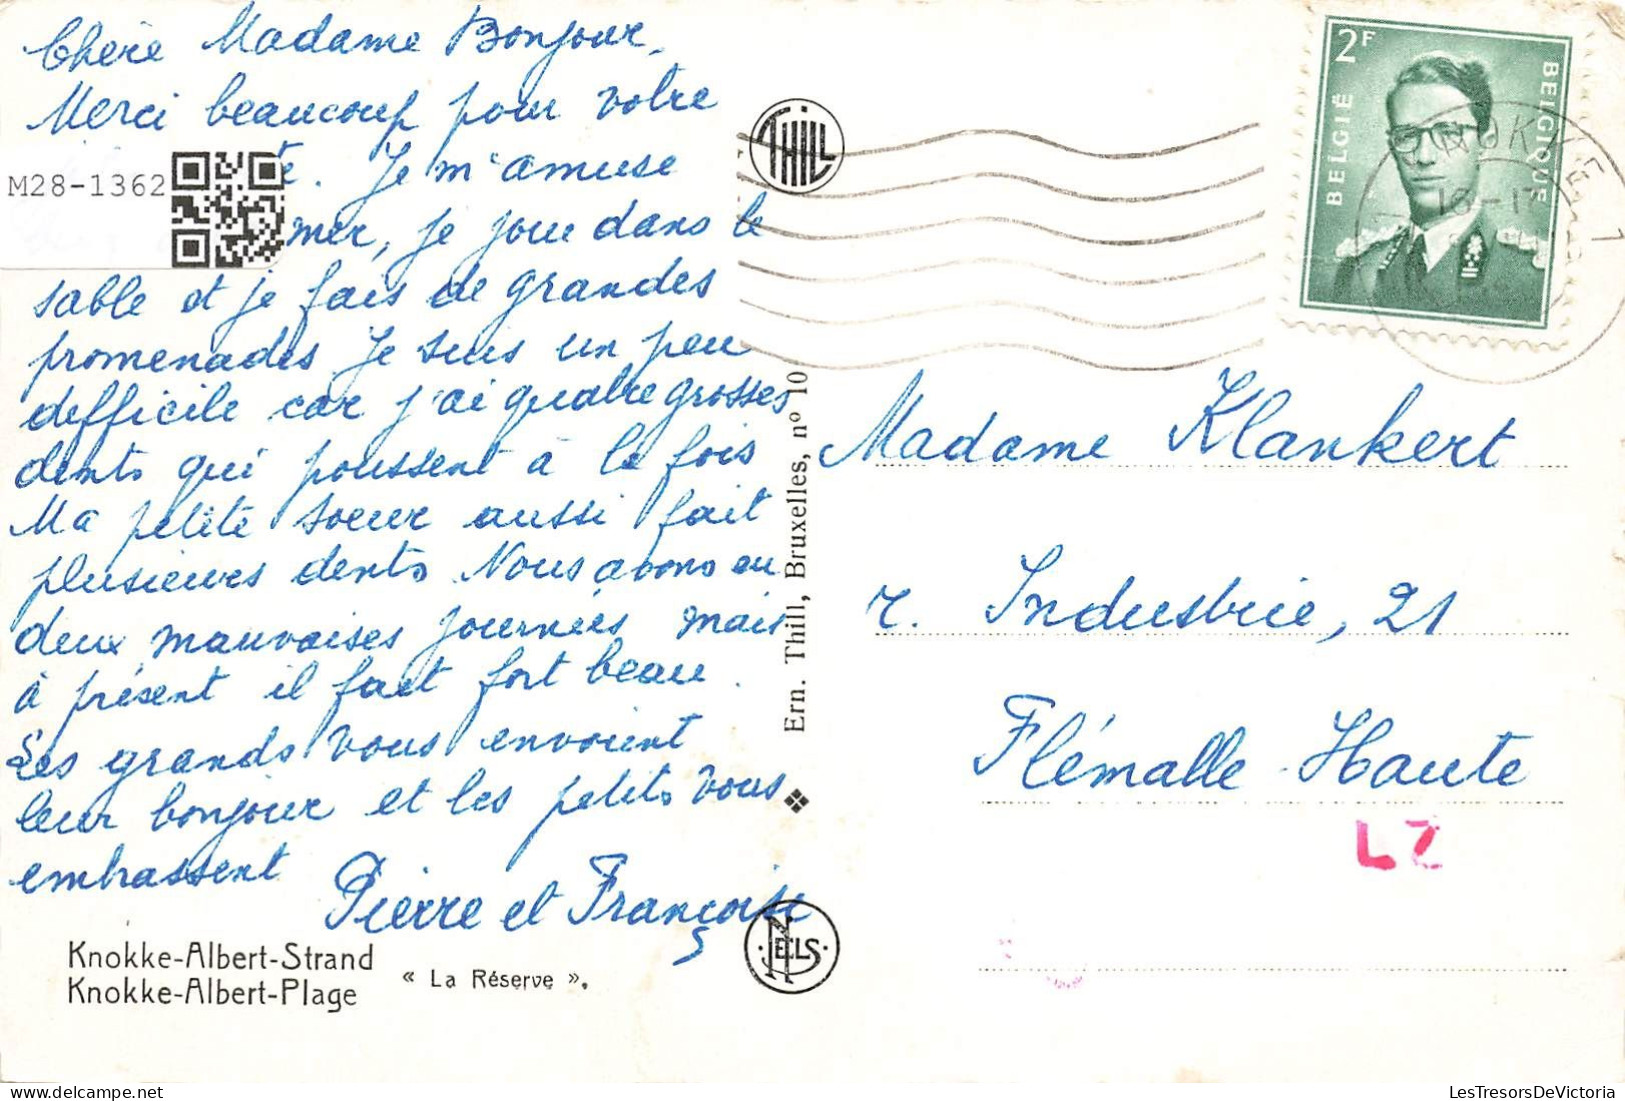 Chère Madame Bonjour,
Merci beaucoup pour votre
te. Je m'amuse
mer, je joue dans le
sable et je fais de grandes
promenades Je suis un peu
difficile car j'ai quatre grosses
dents qui poussent à la fois
Ma petite soeur aussi fait
plusieurs dents. Nous avons eu
deux mauvaises journées mais
à présent il fait fort beau.
Les grands vous envoient
leur bonjour et les petits vous
embrassent
Pierre et Françoise
M28-1362
Knokke-Albert-Strand
Knokke-Albert-Plage
« La Réserve ».
THILL
Ern. Thill, Bruxelles, nº 10
NELS
2F
BELGIË
BELGIQUE
KNOKKE 1
16-17
Madame Klankert
r. Industrie, 21
Flémalle-Haute
LZ
LesTresorsDeVictoria